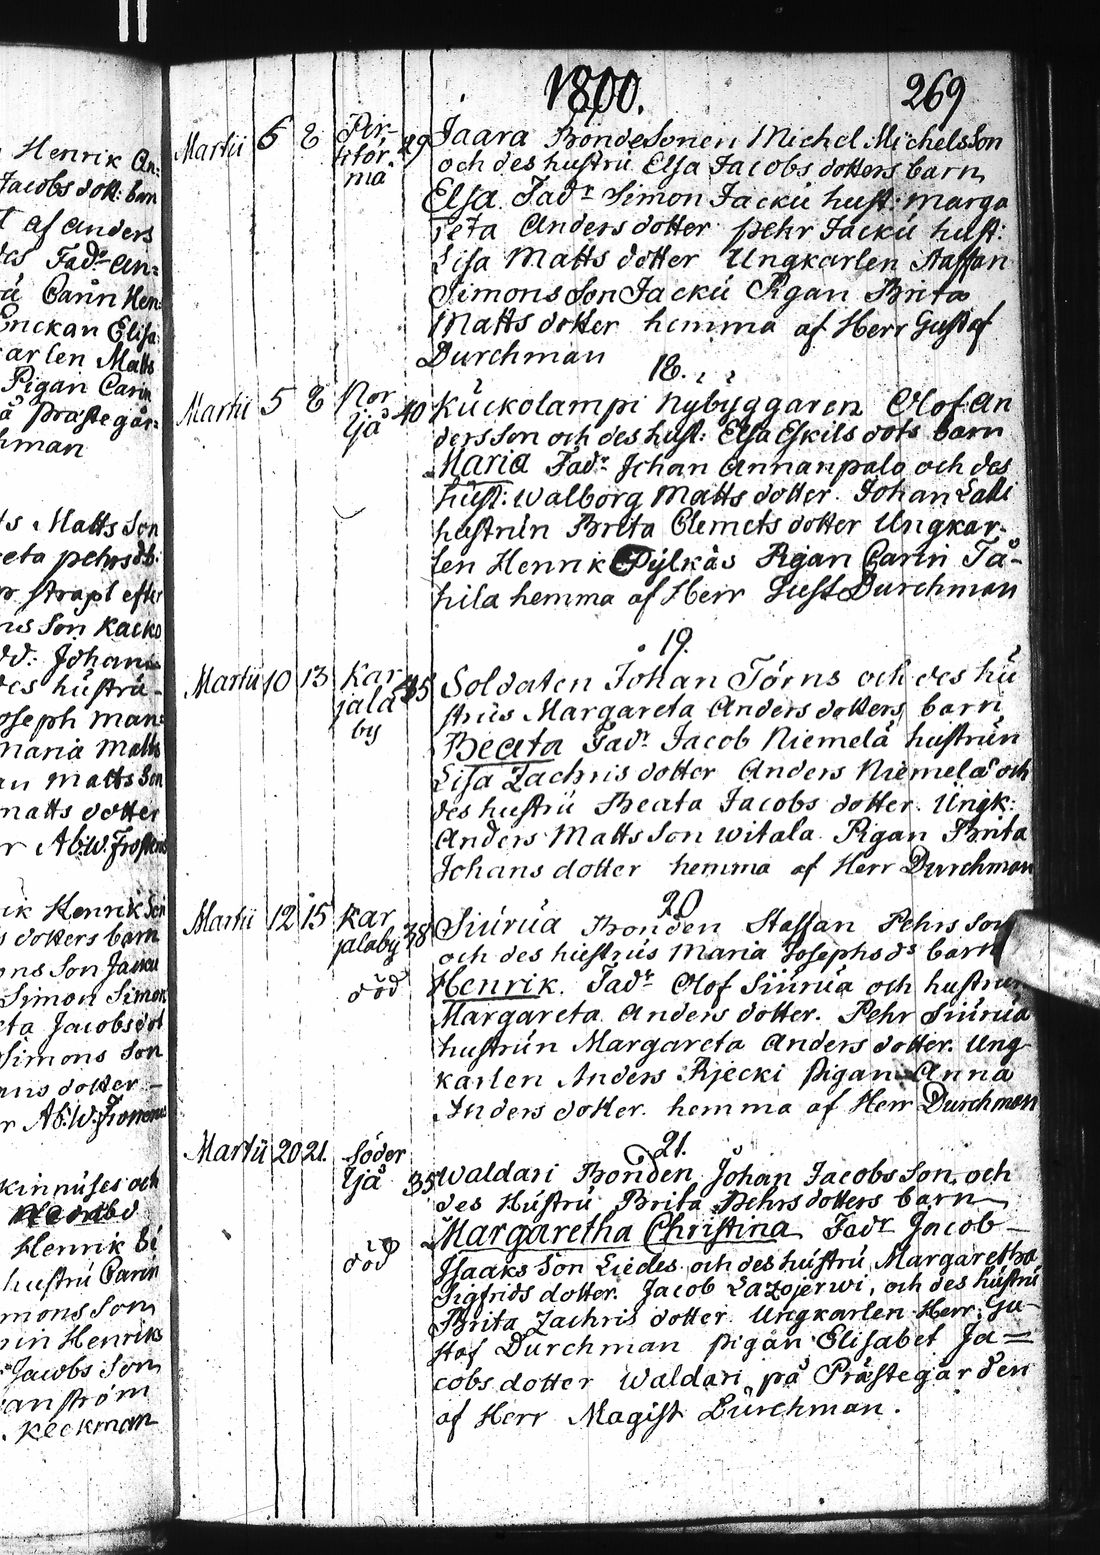 1800. 269
Martii 5 8 Pir-
kiör-
ma 29 Jaara Bondesonen Michel Michelsson
och des hustru Elsa Jacobs dotters barn
Elsa. Fadr Simon Jackú hust: Marga
reta Anders dotter pehr Jackú hust:
Lisa Matts dotter Ungkarlen Staffan
Simons Son Jackú Pigan Brita
Matts dotter hemma af Herr Gustaf
Durchman
18.
Martii 5 8 Nor
Ijå 40 Kuckolampi Nybyggaren Olof An
dersson och des hust: Elsa Eskils dots barn
Maria Fadr Johan Annanpalo och des
hust: Walborg Matts dotter. Johan Lalli
hustrun Brita Clemets dotter Ungkar-
len Henrik Pylkäs Pigan Carin Tå-
hila hemma af Herr Gust Durchman
19.
Martii 10 13 Kar
jala
by 35 Soldaten Johan Törns och des hu
strus Margareta Anders dotters barn
Beata Fadr Jacob Niemelä hustrun
Lisa Zachris dotter Anders Niemelä och
des hustru Beata Jacobs dotter. Ungk:
Anders Matts Son Witala Pigan Brita
Johans dotter hemma af Herr Durchman
20
Martii 12 15 Kar
jalaby 38
död Siurua Bonden Staffan Pehrs Son
och des hustrus Maria Josephs ds barn
Henrik. Fadr Olof Siurua och hustrun
Margareta Anders dotter. Pehr Siurua
hustrun Margareta Anders dotter. Ung
karlen Anders Rjecki Pigan Anna
Anders dotter. hemma af Herr Durchman
21.
Martii 20 21. Söder
Ijå 35
död Waldari Bonden Johan Jacobs Son och
des Hustru Brita Pehrs dotters barn
Margaretha Christina Fadr Jacob
Isaaks Son Liedes och des hustru Margaretha
Sigfrids dotter. Jacob Lazojerwi, och des hustru
Brita Zachris dotter Ungkarlen Herr Gu-
staf Durchman pigan Elisabet Ja=
cobs dotter Waldari på Prästegården
af Herr Magist Durchman.
Henrik An:
Jacobs dott: barn
af Anders
des Fadr An=
Carin Hen:
Enckan Elisa:
arlen Matts
Pigan Carin
å prästegår-
hman
Matts Son
eta pehrs d:b.
ns Son Kacko
Johan
des hustru
oseph Man=
Maria Matts
an Matts Son
matts dotter
r Ab:W. Frosterus
ik Henrik Son
s dotters barn
ons Son Jacku
Simon Simon
eta Jacobs dot
Simons Son
ans dotter
kinnuses och
Henrik
hustru Carin
monsson
rin Henriks
Jacobs Son
anström
Keckman